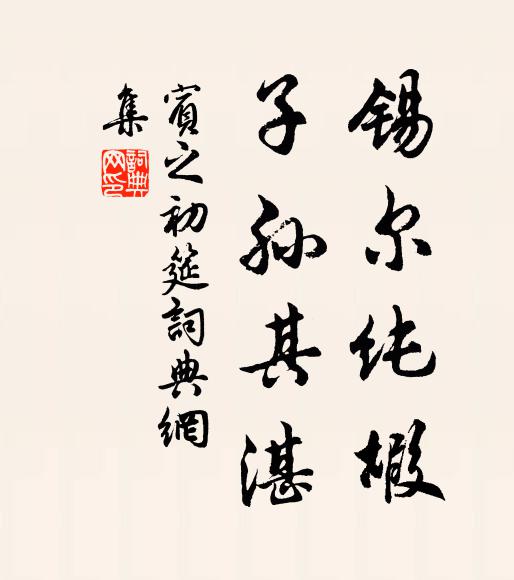 锡尔纯椴
子孙其湛
賓之初筵詞典網
集
詞典网印